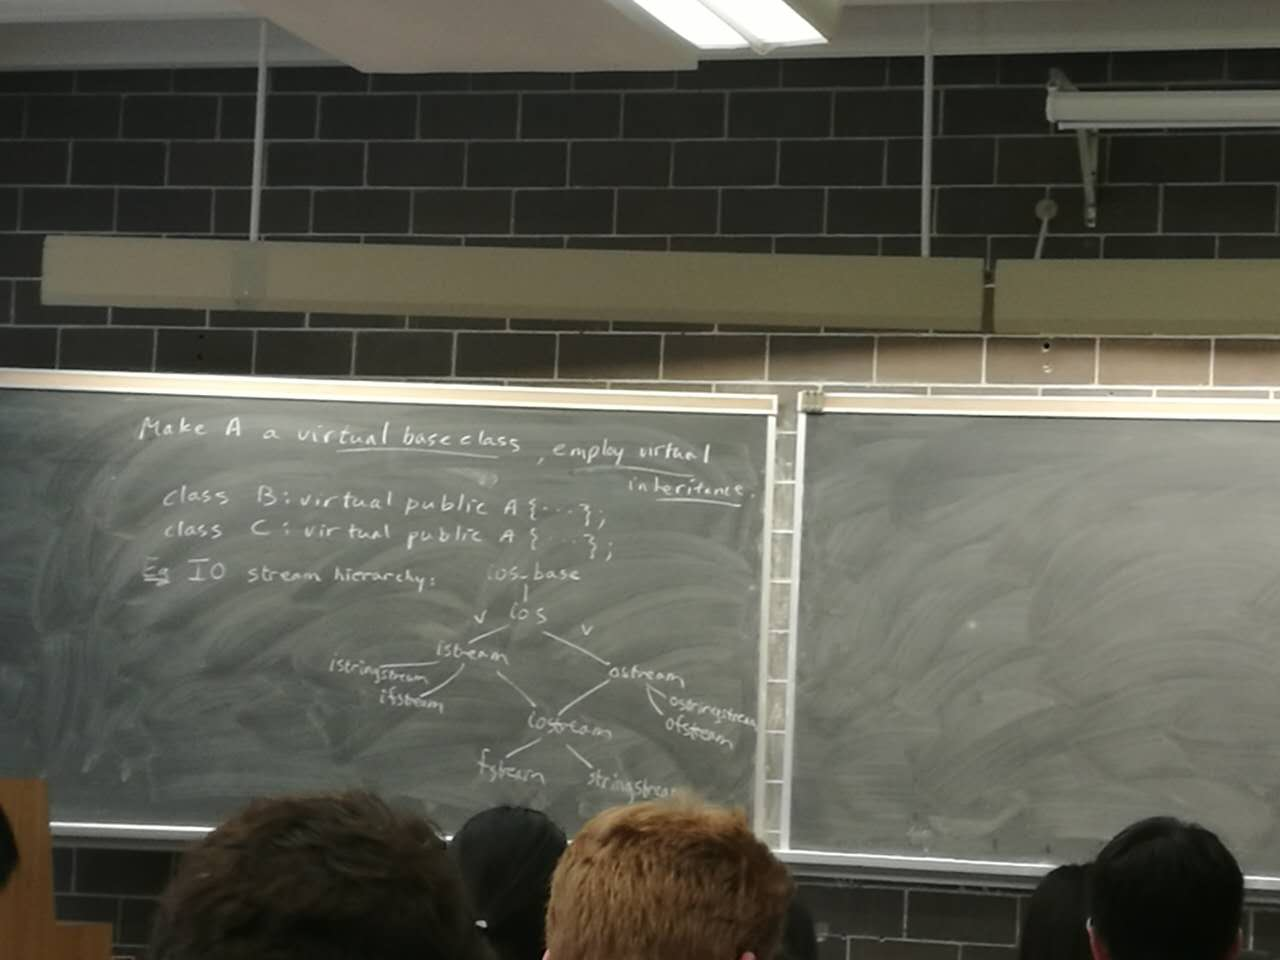 Make A a virtual base class, employ virtual
inheritance.
class B: virtual public A {...};
class C: virtual public A {...};
Eg IO stream hierarchy: ios_base
ios
v v
istream
ostream
istringstream
ifstream
ostringstream
ofstream
iostream
fstream
stringstream